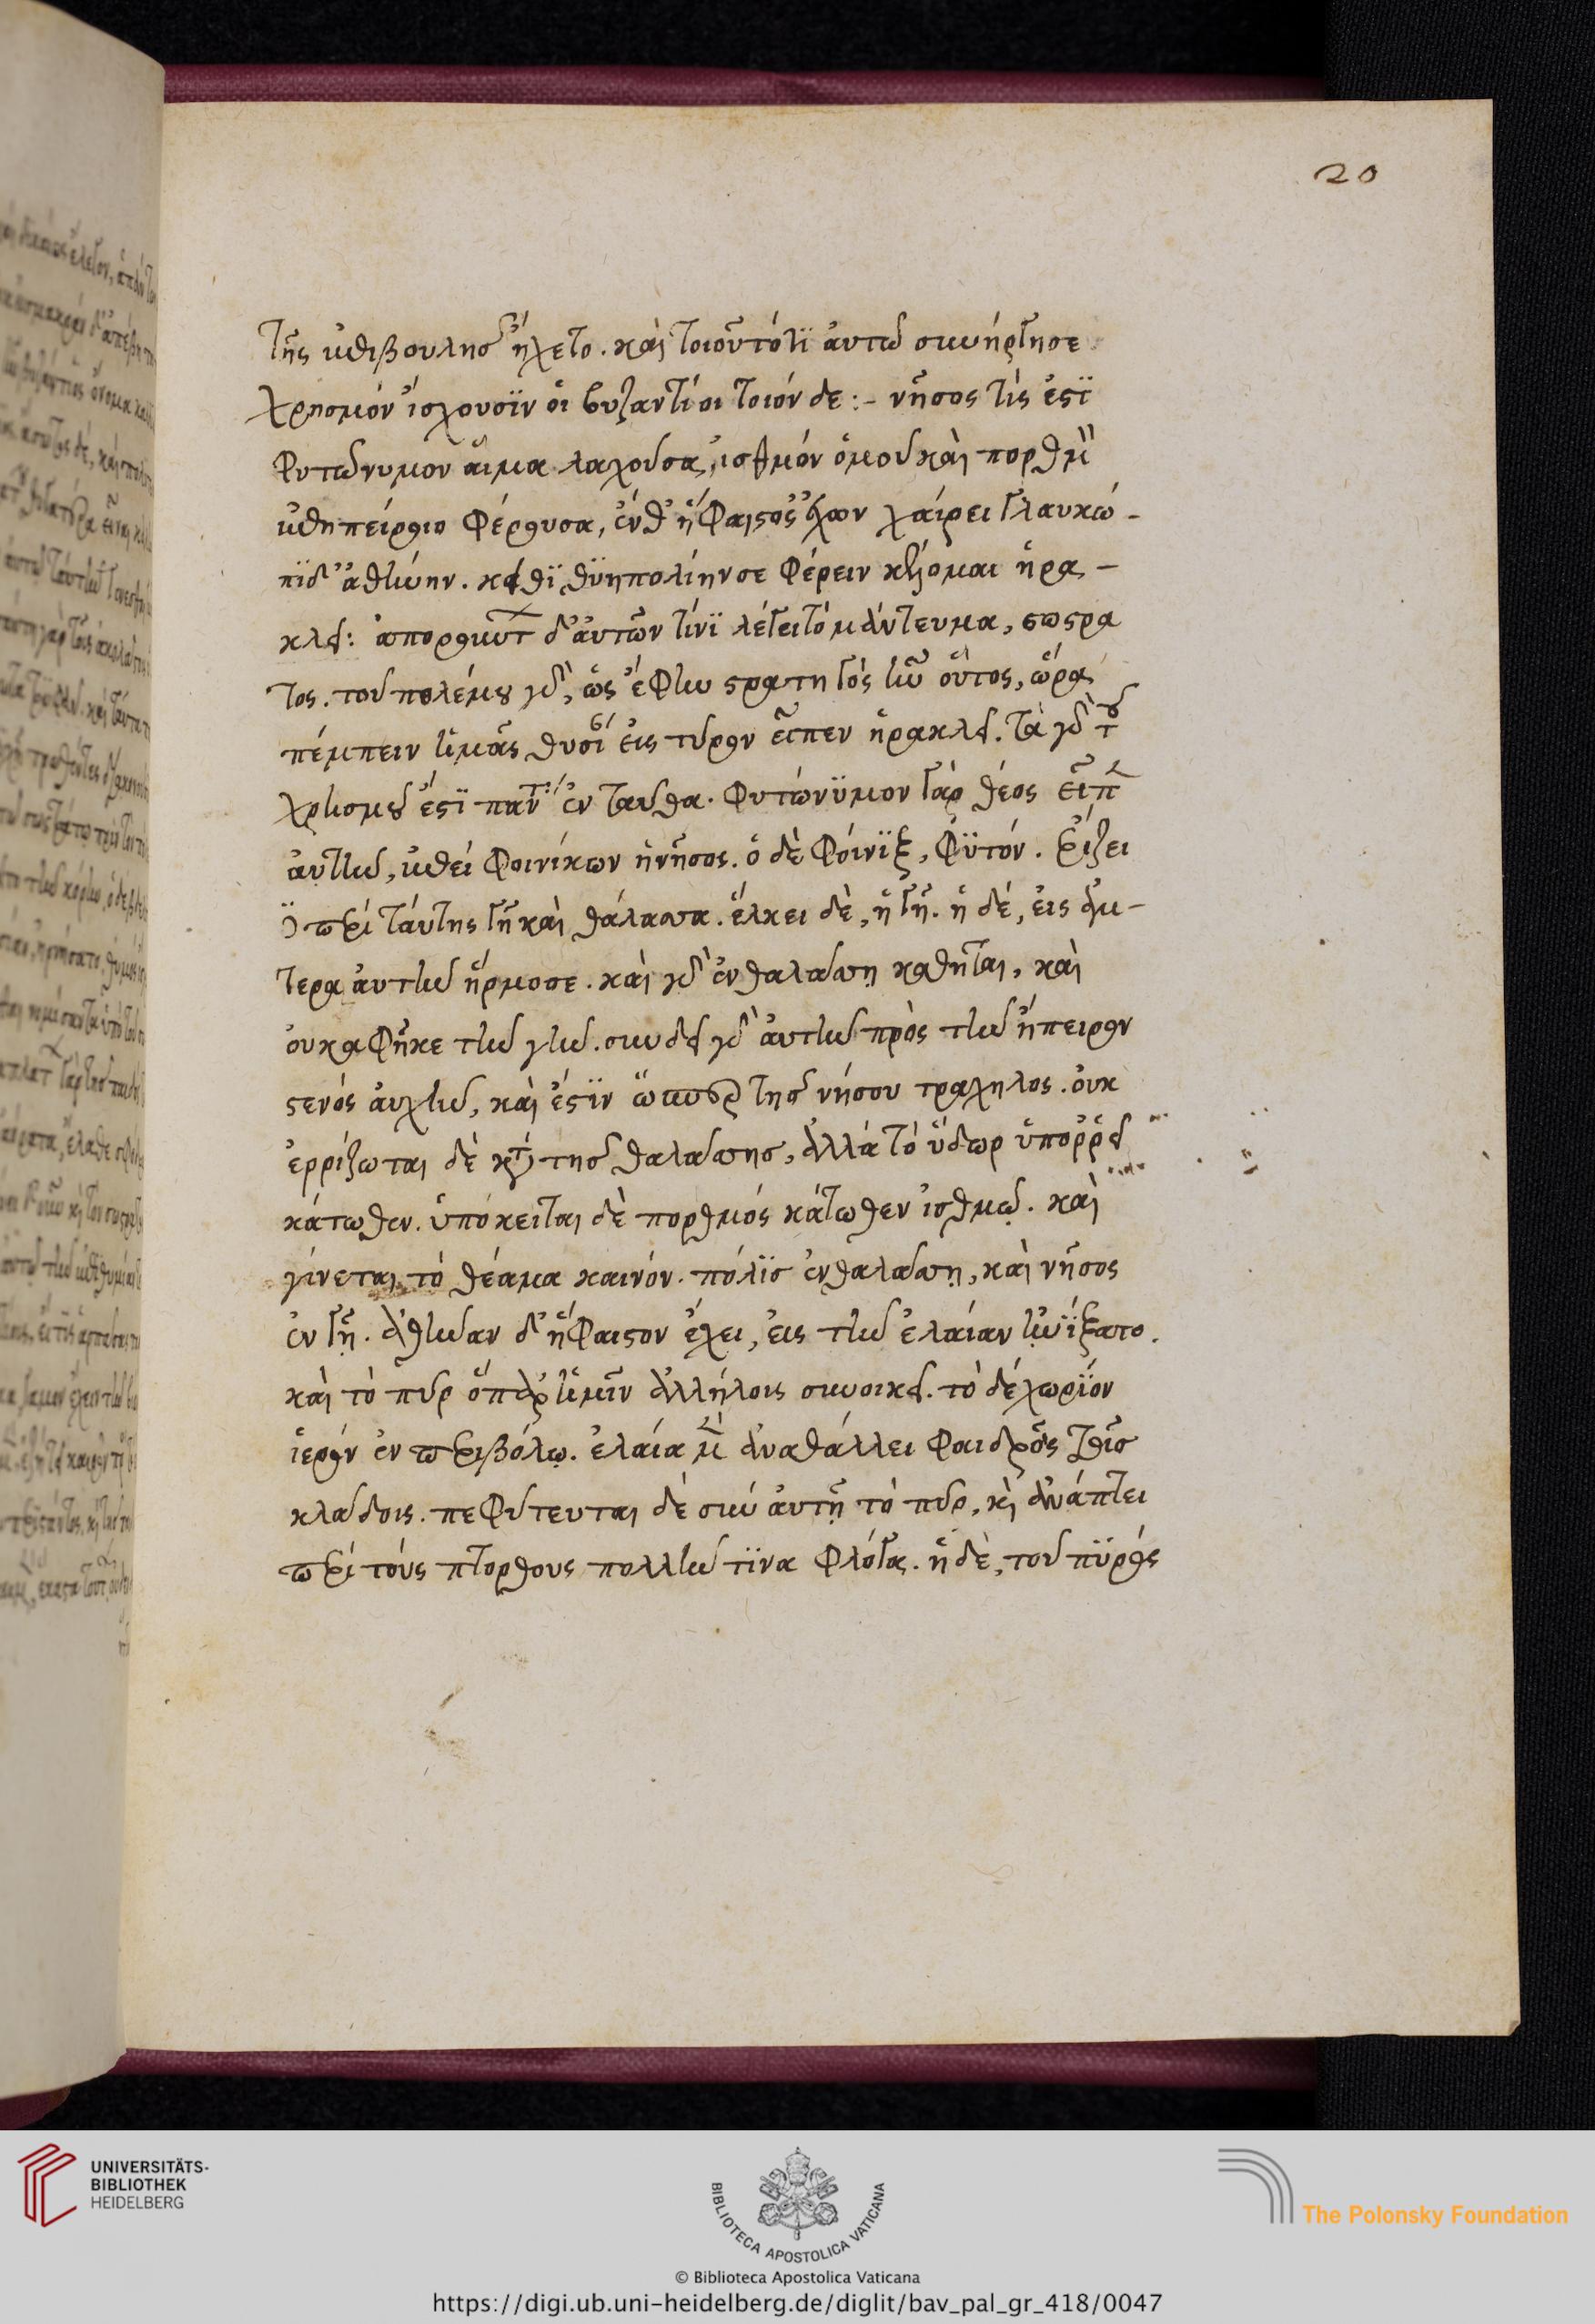 20
τῆς ἐπιβουλῆσ ἤχετο. καὶ τοιοῦτό τϊ ἀυτῶ συνήρτησε
χρησμόν ἴσχουσϊν ὁι βυζαντίοι τοιόν δε :– νῆσος τίς ἐστϊ
φυτώνυμον ἅιμα λαχοῦσα, ἰσθμόν ὁμοῦ καὶ πορθμὸν
ἐπηπείροιο φέρουσα, ἔνθ ἥφαιστος ἔχων χαίρει γλαυκώ–
πϊδ ἀθήνην. κεῖθϊ θϋηπολίην σε φέρειν κέλομαι ἥρα–
κλεῖ: ἀπορούντων δ ἀυτῶν τίνϊ λέγει τό μάντευμα, σώστρα
τος. τοῦ πολέμου γὰρ, ὡς ἔφην στρατηγός ἦν οὗτος, ὥρα
πέμπειν ἡμᾶς θυσίαν ἐις τύρον εἶπεν ἡρακλεῖ. τὰ γὰρ τοῦ
χρησμοῦ ἐστϊ πάντα ἐνταῦθα. φυτώνϋμον γάρ θέος εἶπεν
ἀυτήν, ἐπεί φοινίκων ἡ νῆσος. ὁ δὲ φοίνϊξ, φϋτόν. ἐρίζει
περί ταύτης γῆ καὶ θάλασσα. ἕλκει δὲ, ἡ γῆ. ἡ δέ, ἐις ἀμφό–
τερα ἀυτήν ἥρμοσε. καὶ γὰρ ἐν θαλάσση καθῆται, καὶ
ὀυκ ἀφῆκε τήν γῆν. συνδεῖ γὰρ ἀυτήν πρὸς τήν ἤπειρον
στενός ἀυχήν, καὶ ἔστϊν ὥσπερ τῆσ νήσου τράχηλος. ὀυκ
ἐρρίζωται δὲ κατά τῆσ θαλάσσησ, ἀλλά τό ὕδωρ ὑπορρεῖ
κάτωθεν. ὑπόκειται δὲ πορθμός κάτωθεν ἰσθμῶ. καὶ
γίνεται τὸ θέαμα καινόν. πόλϊσ ἐν θαλάσση, καὶ νῆσος
ἐν γῆ. ἀθηνᾶν δ ἥφαιστον ἔχει, ἐις τήν ἐλαίαν ἠνίξατο.
καὶ τὸ πῦρ ὃ παρ ἡμῖν ἀλλήλοις συνοικεῖ. τὸ δέ χωρϊόν
ἱερόν ἐν περιβόλω. ἐλαία μὲν ἀναθάλλει φαιδροῖς τοῖσ
κλάδοις. πεφύτευται δὲ σύν ἀυτῆ τὸ πῦρ, κὶ ἀνάπτει
περί τούς πτόρθους πολλήν τϊνα φλόγα. ἡ δὲ, τοῦ πϋρός
UNIVERSITÄTS-
BIBLIOTHEK
HEIDELBERG
BIBLIOTECA APOSTOLICA VATICANA
The Polonsky Foundation
© Biblioteca Apostolica Vaticana
https://digi.ub.uni-heidelberg.de/diglit/bav_pal_gr_418/0047